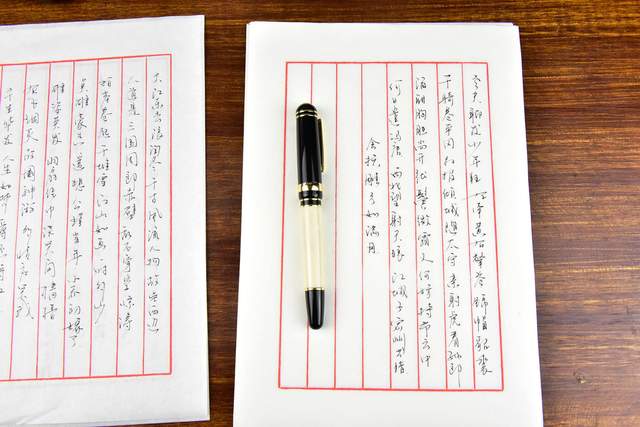 老夫聊发少年狂 左牵黄右擎苍 锦帽貂裘
千骑卷平冈 为报倾城随太守 亲射虎看孙郎
酒酣胸胆尚开张 鬓微霜又何妨 持节云中
何日遣冯唐 西北望射天狼 江城子密州出猎
会挽雕弓如满月
大江东去浪淘尽千古风流人物故垒西边
人道是三国周郎赤壁 乱石穿空惊涛
拍岸卷起千堆雪江山如画一时多少
英雄豪杰 遥想公瑾当年小乔初嫁了
雄姿英发 羽扇纶巾谈笑间樯橹
灰飞烟灭故国神游多情应笑我
早生华发 人生如梦